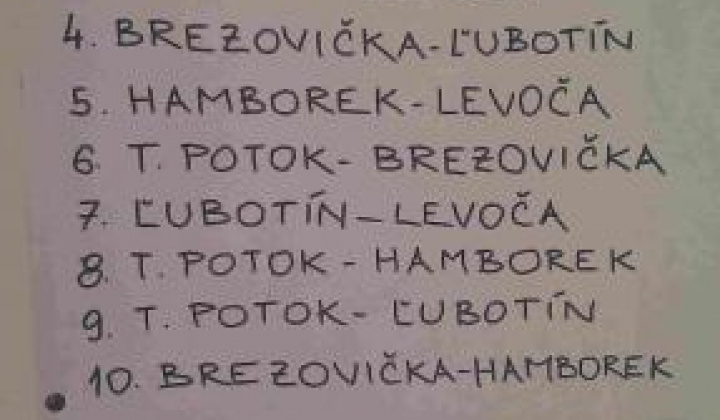 4. BREZOVIČKA-ĽUBOTÍN
5. HAMBOREK-LEVOČA
6. T. POTOK-BREZOVIČKA
7. ĽUBOTÍN-LEVOČA
8. T. POTOK - HAMBOREK
9. T. POTOK-ĽUBOTÍN
10. BREZOVIČKA-HAMBOREK